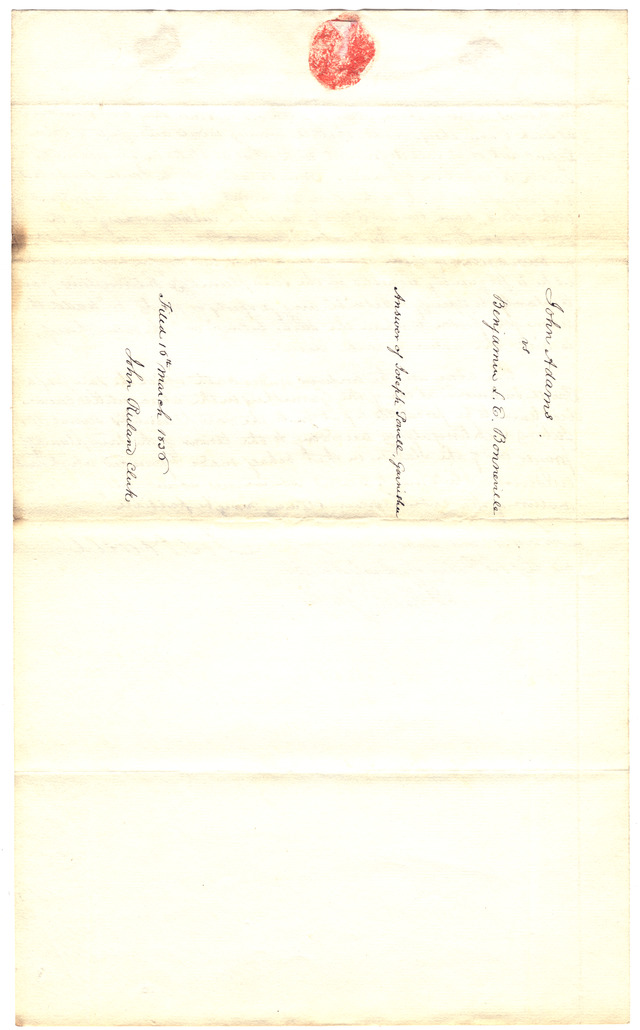 John Adams.
vs
Benjamin L. E. Bonneville
Answer of Joseph Powell, Garnishee
Filed 15th March 1836
John Ruland Clerk